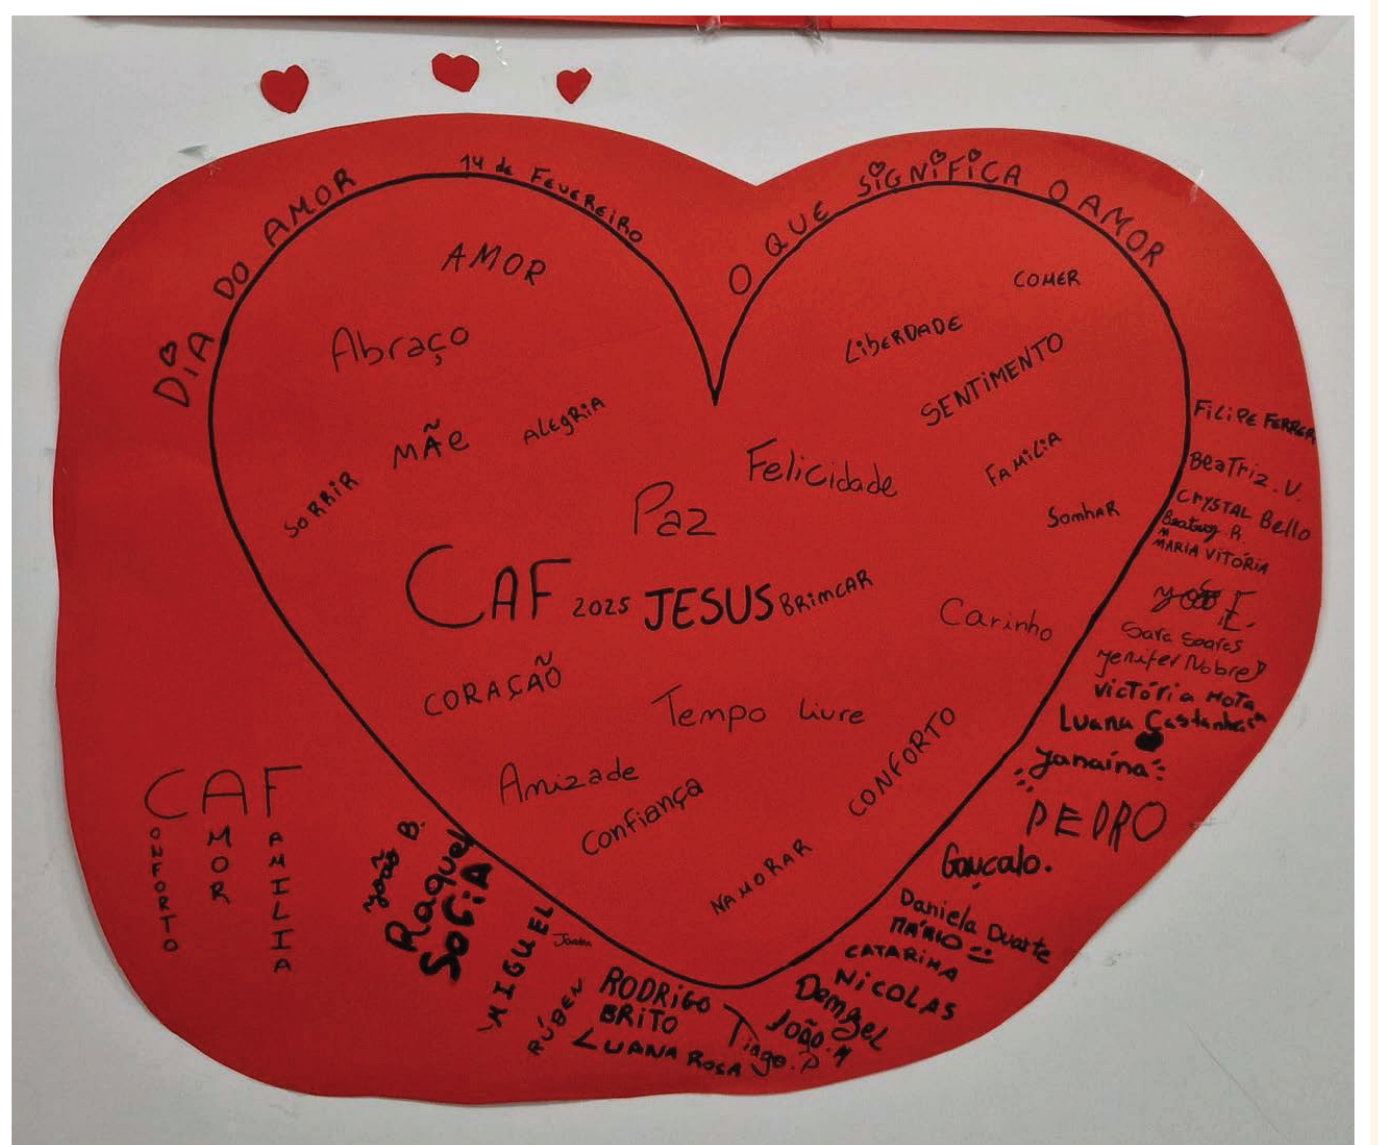 DIA DO AMOR
14 de FEVEREIRO
O QUE SIGNIFICA O AMOR
AMOR
Abraço
MÃe
ALEGRIA
SORRIR
COMER
LIBERDADE
SENTIMENTO
FAMILIA
Felicidade
Paz
SomhAR
CAF 2025 JESUS BRIMCAR
Carinho
CORAÇÃO
Tempo Livre
Amizade
Confiança
CONFORTO
NAMORAR
CAF
CONFORTO
AMOR
FAMILIA
João B.
Raquel
SOFIA
MIGUEL
RÚBEN
RODRIGO
BRITO
LUANA ROSA
Tiago. P
João. M
Demgel
NICOLAS
CATARINA
MÁRIO
Daniela Duarte
Gonçalo.
PEDRO
Janaína
Luana Castanheira
Victória Mota
Jenifer Nobre
Sara Soares
MARIA VITÓRIA
Beatriz R.
CRYSTAL Bello
BeaTriz. V.
FILIPE FERRER